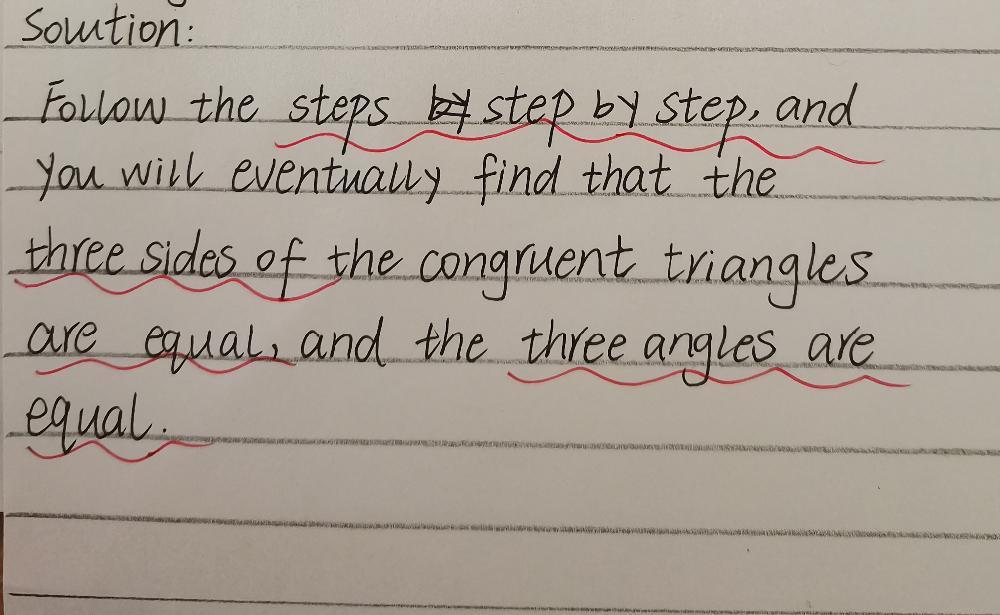 Solution:
Follow the steps step by step, and
you will eventually find that the
three sides of the congruent triangles
are equal, and the three angles are
equal.